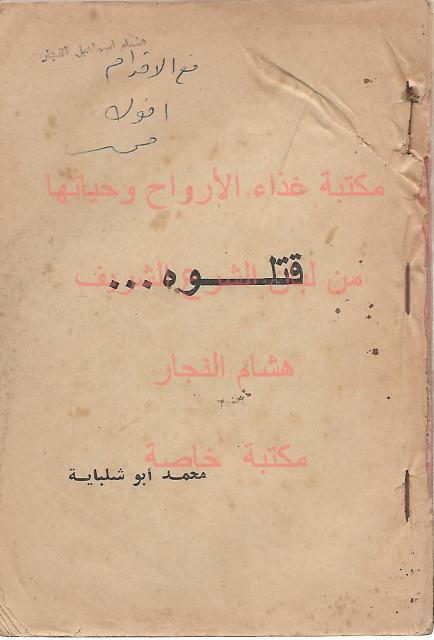 هشام اسماعيل النجار
مع الاحترام
اخوك
مكتبة غذاء الأرواح وحياتها
قتلـــــوه...
من لباب الشرع الشريف
هشام النجار
مكتبة خاصة
محمد أبو شلباية